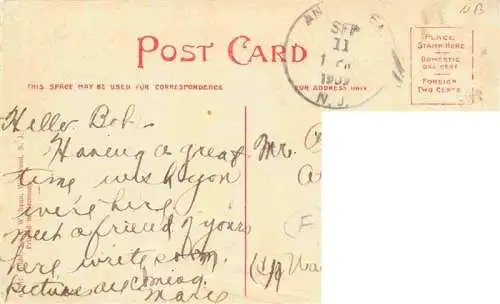 POST CARD
THIS SPACE MAY BE USED FOR CORRESPONDENCE
FOR ADDRESS ONLY
PLACE
STAMP HERE
DOMESTIC
ONE CENT
FOREIGN
TWO CENTS
NB
SEP
11
1909
N. J.
Hello Bob-
Having a great
time wish you
were here
met a friend of yours
here write soon.
pictures are coming.
Marie
Mr.